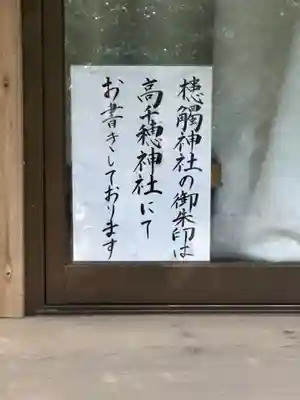 槵觸神社の御朱印は
高千穂神社にて
お書きしております